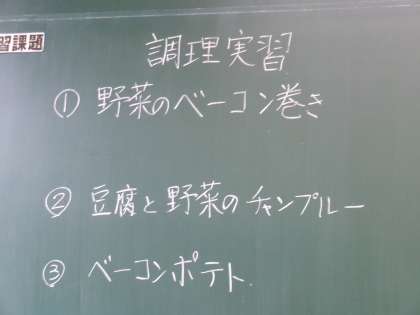 習課題
調理実習
① 野菜のベーコン巻き
② 豆腐と野菜のチャンプルー
③ ベーコンポテト.